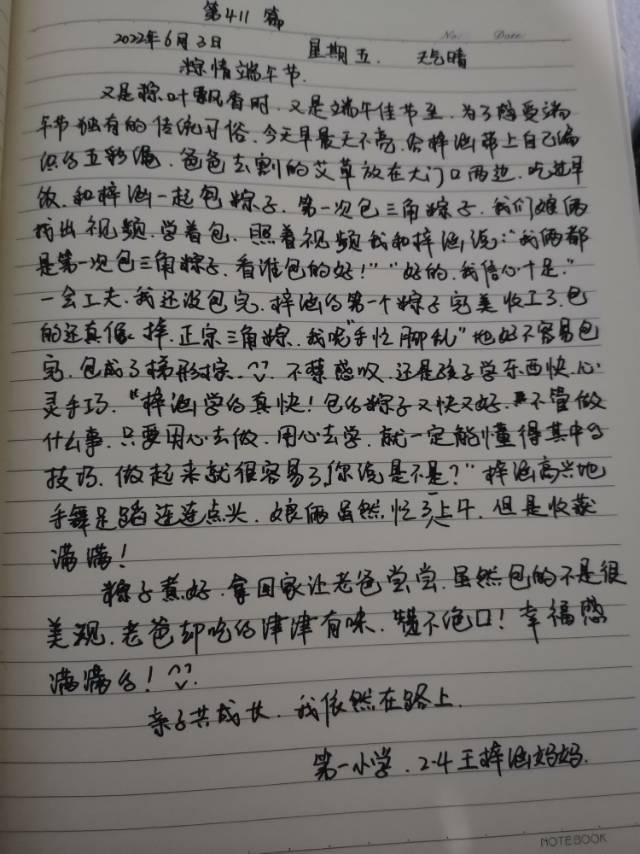 第411篇
No: Date
2022年6月3日 星期五. 天气晴
粽情端午节.
又是粽叶飘香时.又是端午佳节至.为了接受端
午节独有的传统习俗.今天早晨天不亮.给梓涵带上自己编
织的五彩绳.爸爸去割的艾草放在大门口两边.吃过早
饭.和梓涵一起包粽子.第一次包三角粽子.我们娘俩
找出视频.学着包.照着视频我和梓涵说:"我俩都
是第一次包三角粽子.看谁包的好!""好的.我信心十足."
一会工夫.我还没包完.梓涵的第一个粽子完美收工了.包
的还真像样.正宗三角粽.我呢"手忙脚乱"地好不容易包
完.包成了梯形粽.不禁感叹.还是孩子学东西快.心
灵手巧."梓涵学的真快!包的粽子又快又好.不管做
什么事.只要用心去做.用心去学.就一定能懂得其中的
技巧.做起来就很容易了,你说是不是?"梓涵高兴地
手舞足蹈连连点头.娘俩虽然忙了上午.但是收获
满满!
粽子煮好.拿回家让老爸尝尝.虽然包的不是很
美观.老爸却吃的津津有味.赞不绝口!幸福感
满满的!
亲子共成长.我依然在路上.
第一小学.2-4王梓涵妈妈.
NOTEBOOK